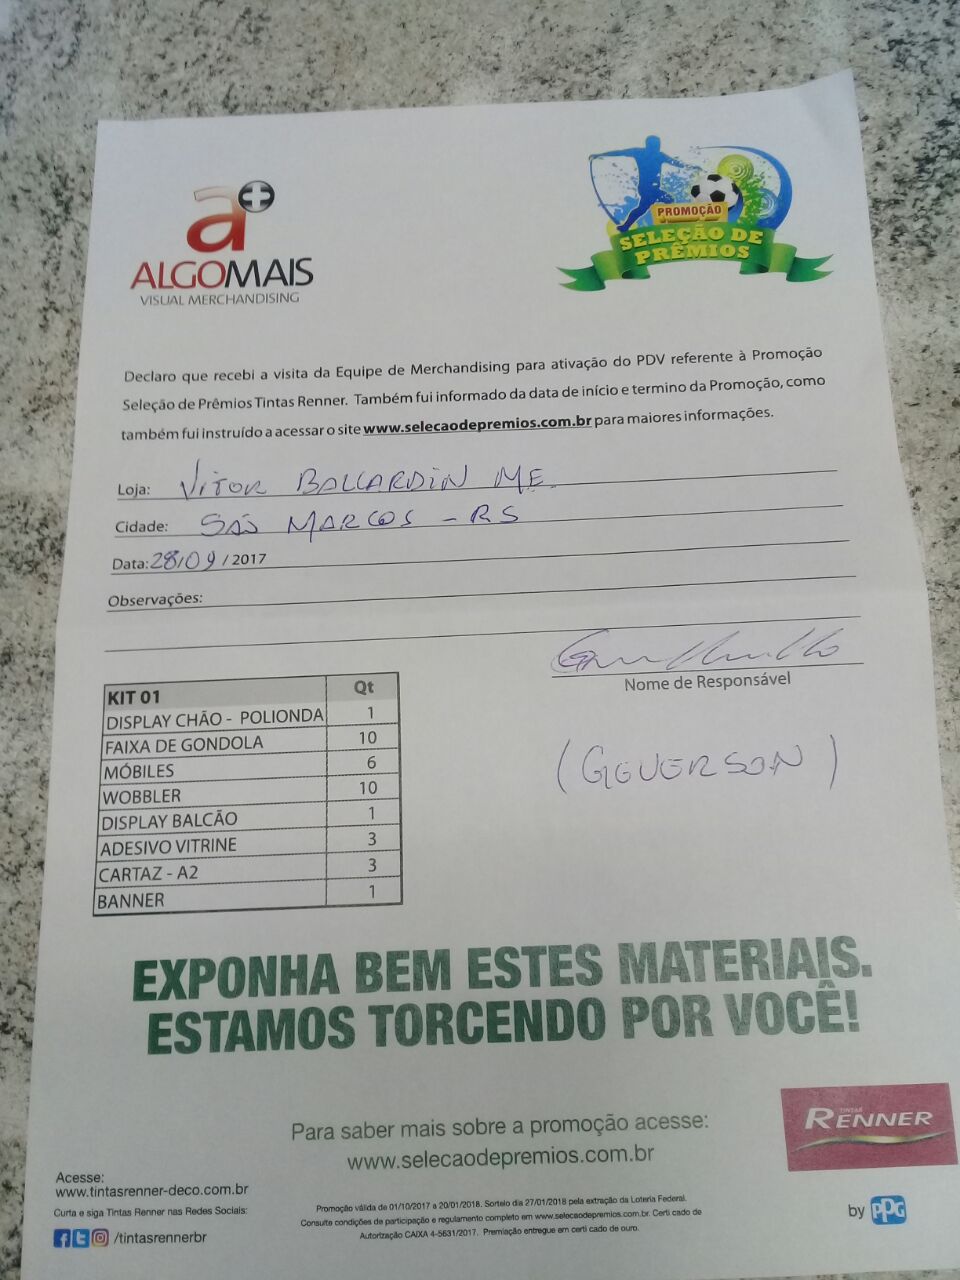 a+
ALGOMAIS
VISUAL MERCHANDISING
PROMOÇÃO
SELEÇÃO DE
PRÊMIOS
Declaro que recebi a visita da Equipe de Merchandising para ativação do PDV referente à Promoção
Seleção de Prêmios Tintas Renner. Também fui informado da data de início e termino da Promoção, como
também fui instruído a acessar o site www.selecaodepremios.com.br para maiores informações.
Loja: VITOR BALLARDIN ME.
Cidade: SÃO MARCOS - RS
Data: 28/09/2017
Observações:
Nome de Responsável
(GEVERSON)
KIT 01 Qt
DISPLAY CHÃO - POLIONDA 1
FAIXA DE GONDOLA 10
MÓBILES 6
WOBBLER 10
DISPLAY BALCÃO 1
ADESIVO VITRINE 3
CARTAZ - A2 3
BANNER 1
EXPONHA BEM ESTES MATERIAIS.
ESTAMOS TORCENDO POR VOCÊ!
Para saber mais sobre a promoção acesse:
www.selecaodepremios.com.br
TINTAS
RENNER
by PPG
Acesse:
www.tintasrenner-deco.com.br
Curta e siga Tintas Renner nas Redes Sociais:
/tintasrennerbr
Promoção válida de 01/10/2017 a 20/01/2018. Sorteio dia 27/01/2018 pela extração da Loteria Federal.
Consulte condições de participação e regulamento completo em www.selecaodepremios.com.br. Certi cado de
Autorização CAIXA 4-5631/2017. Premiação entregue em certi cado de ouro.